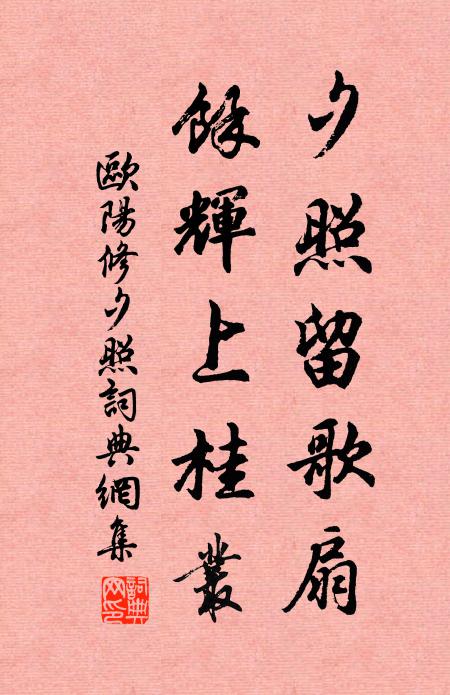 夕照留歌扇
餘輝上桂叢
歐陽修夕照詞典網集